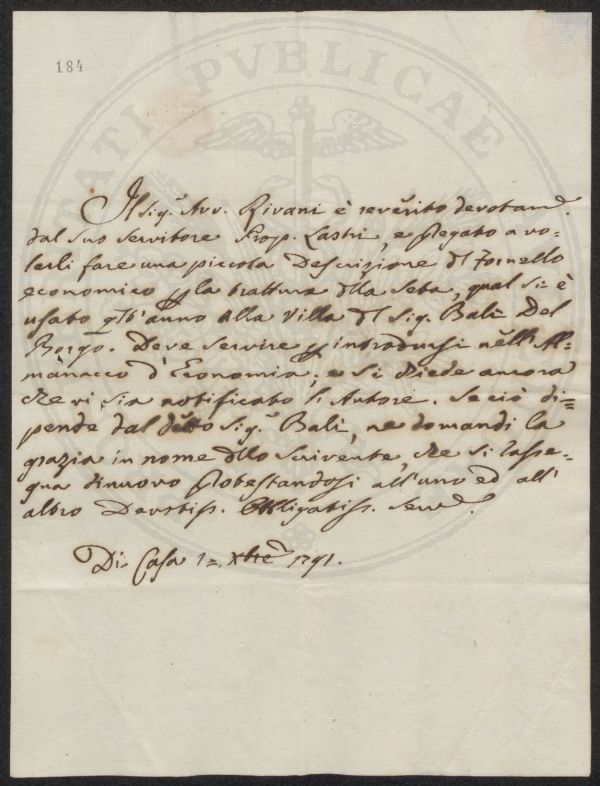 184
UTILITATI PVBLICAE
Il Sig.r Avv. Rivani è reverito devotam.e
dal suo servitore Prop. Lastri, e pregato a vo-
lerli fare una piccola Descrizione del Fornello
economico p la trattura della Seta, qual si è
usato qst'anno alla Villa del Sig.r Balì Del
Borgo. Deve servire p introdursi nell'Al-
manacco d'Economia; e si chiede ancora
che vi sia notificato l'Autore. Se ciò di=
pende dal detto Sig.r Balì, ne domandi la
grazia in nome dello scrivente, che si rasse-
gna di nuovo protestandosi all'uno ed all'
altro Devotiss. Obbligatiss. Serv.e
Di Casa 1= Xbre 1791.